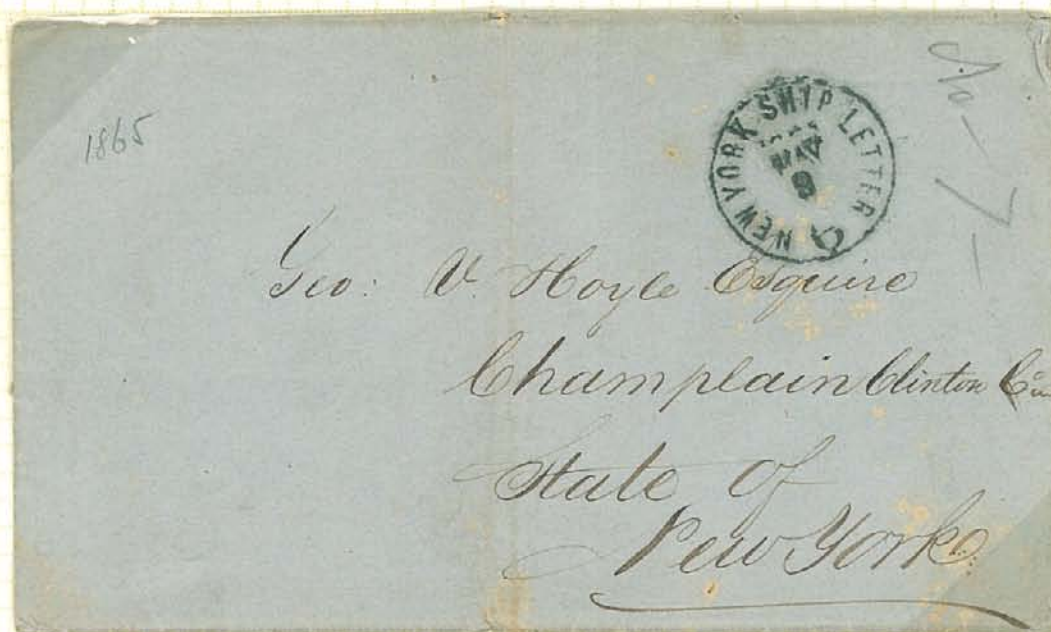 1865
NEW YORK SHIP LETTER
MAY
No - 7 -
Geo: V. Hoyle Esquire
Champlain Clinton
State of
New York